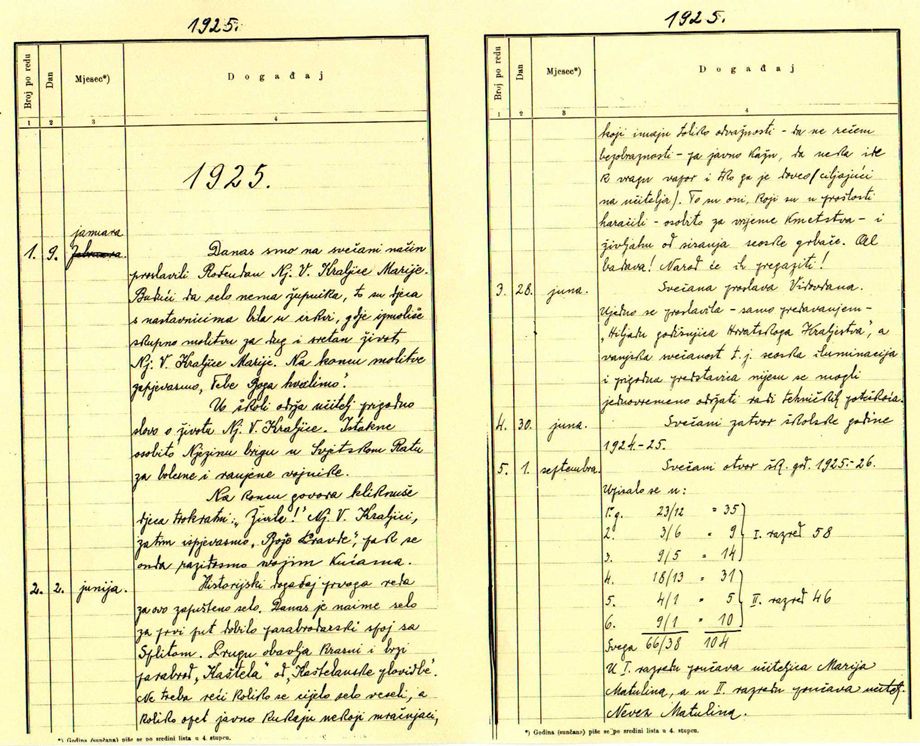 1925.
Broj po redu
Dan
Mjesec*)
Događaj
1 2 3 4
1925.
1. 9. januara
februara. Danas smo na svečani način
proslavili Rođendan Nj. V. Kraljice Marije.
Budući da selo nema župnika, to su djeca
s nastavnicima bila u crkvi, gdje izmoliše
skupno molitvu za dug i sretan život
Nj. V. Kraljice Marije. Na koncu molitve
zapjevasmo „Tebe Boga hvalimo".
U školi održa učitelj prigodno
slovo o života Nj. V. Kraljice. Istakne
osobito Njezinu brigu u Svjetskom Ratu
za bolesne i ranjene vojnike.
Na koncu govora kliknuše
djeca trokratni: „Živila!" Nj. V. Kraljici,
zatim ispjevasmo „Bože Pravde", pak se
onda razidosmo svojim kućama.
2. 2. junija. Historijski događaj prvoga reda
za ovo zapušteno selo. Danas je naime selo
za prvi put dobilo parabrodarski spoj sa
Splitom. Prugu obavlja krasni i brzi
parabrod „Kaštela" od „Kaštelanske plovidbe".
Ne treba reći koliko se cijelo selo veseli, a
koliko opet javno kukaju nekoji mračnjaci,
*) Godina (sunčana) piše se po sredini lista u 4. stupcu.
1925.
Broj po redu
Dan
Mjesec*)
Događaj
1 2 3 4
koji imaju toliko odvažnosti - da ne rečem
bezobraznosti - pa javno kažu, da neka ide
k vragu vapor i tko ga je doveo (ciljajući
na učitelja). To su oni, koji su u prošlosti
haračili - osobito za vrijeme kmetstva - i
življahu od
seoske grbače. Al
badava! Narod će ih pregaziti!
3. 28. juna. Svečana proslava Vidovdana.
Ujedno se proslavila - samo predavanjem -
„Hiljadu godišnjica Hrvatskoga Kraljestva", a
vanjska svečanost t.j. seoska iluminacija
i prigodna predstavica nijesu se mogli
jednovremeno održati radi tehničkih poteškoća.
4. 30. juna. Svečani zatvor školske godine
1924.-25.
5. 1. septembra. Svečani otvor šk. god. 1925.-26.
Upisalo se u:
1. g. 23/12 = 35
2. 3/6 = 9 I. razred 58
3. 9/5 = 14
4. 18/13 = 31
5. 4/1 = 5 II. razred 46
6. 9/1 = 10
Svega 66/38 104
U I. razredu poučava učiteljica Marija
Matulina, a u II. razredu poučava učitelj
Neven Matulina.
*) Godina (sunčana) piše se po sredini lista u 4. stupcu.